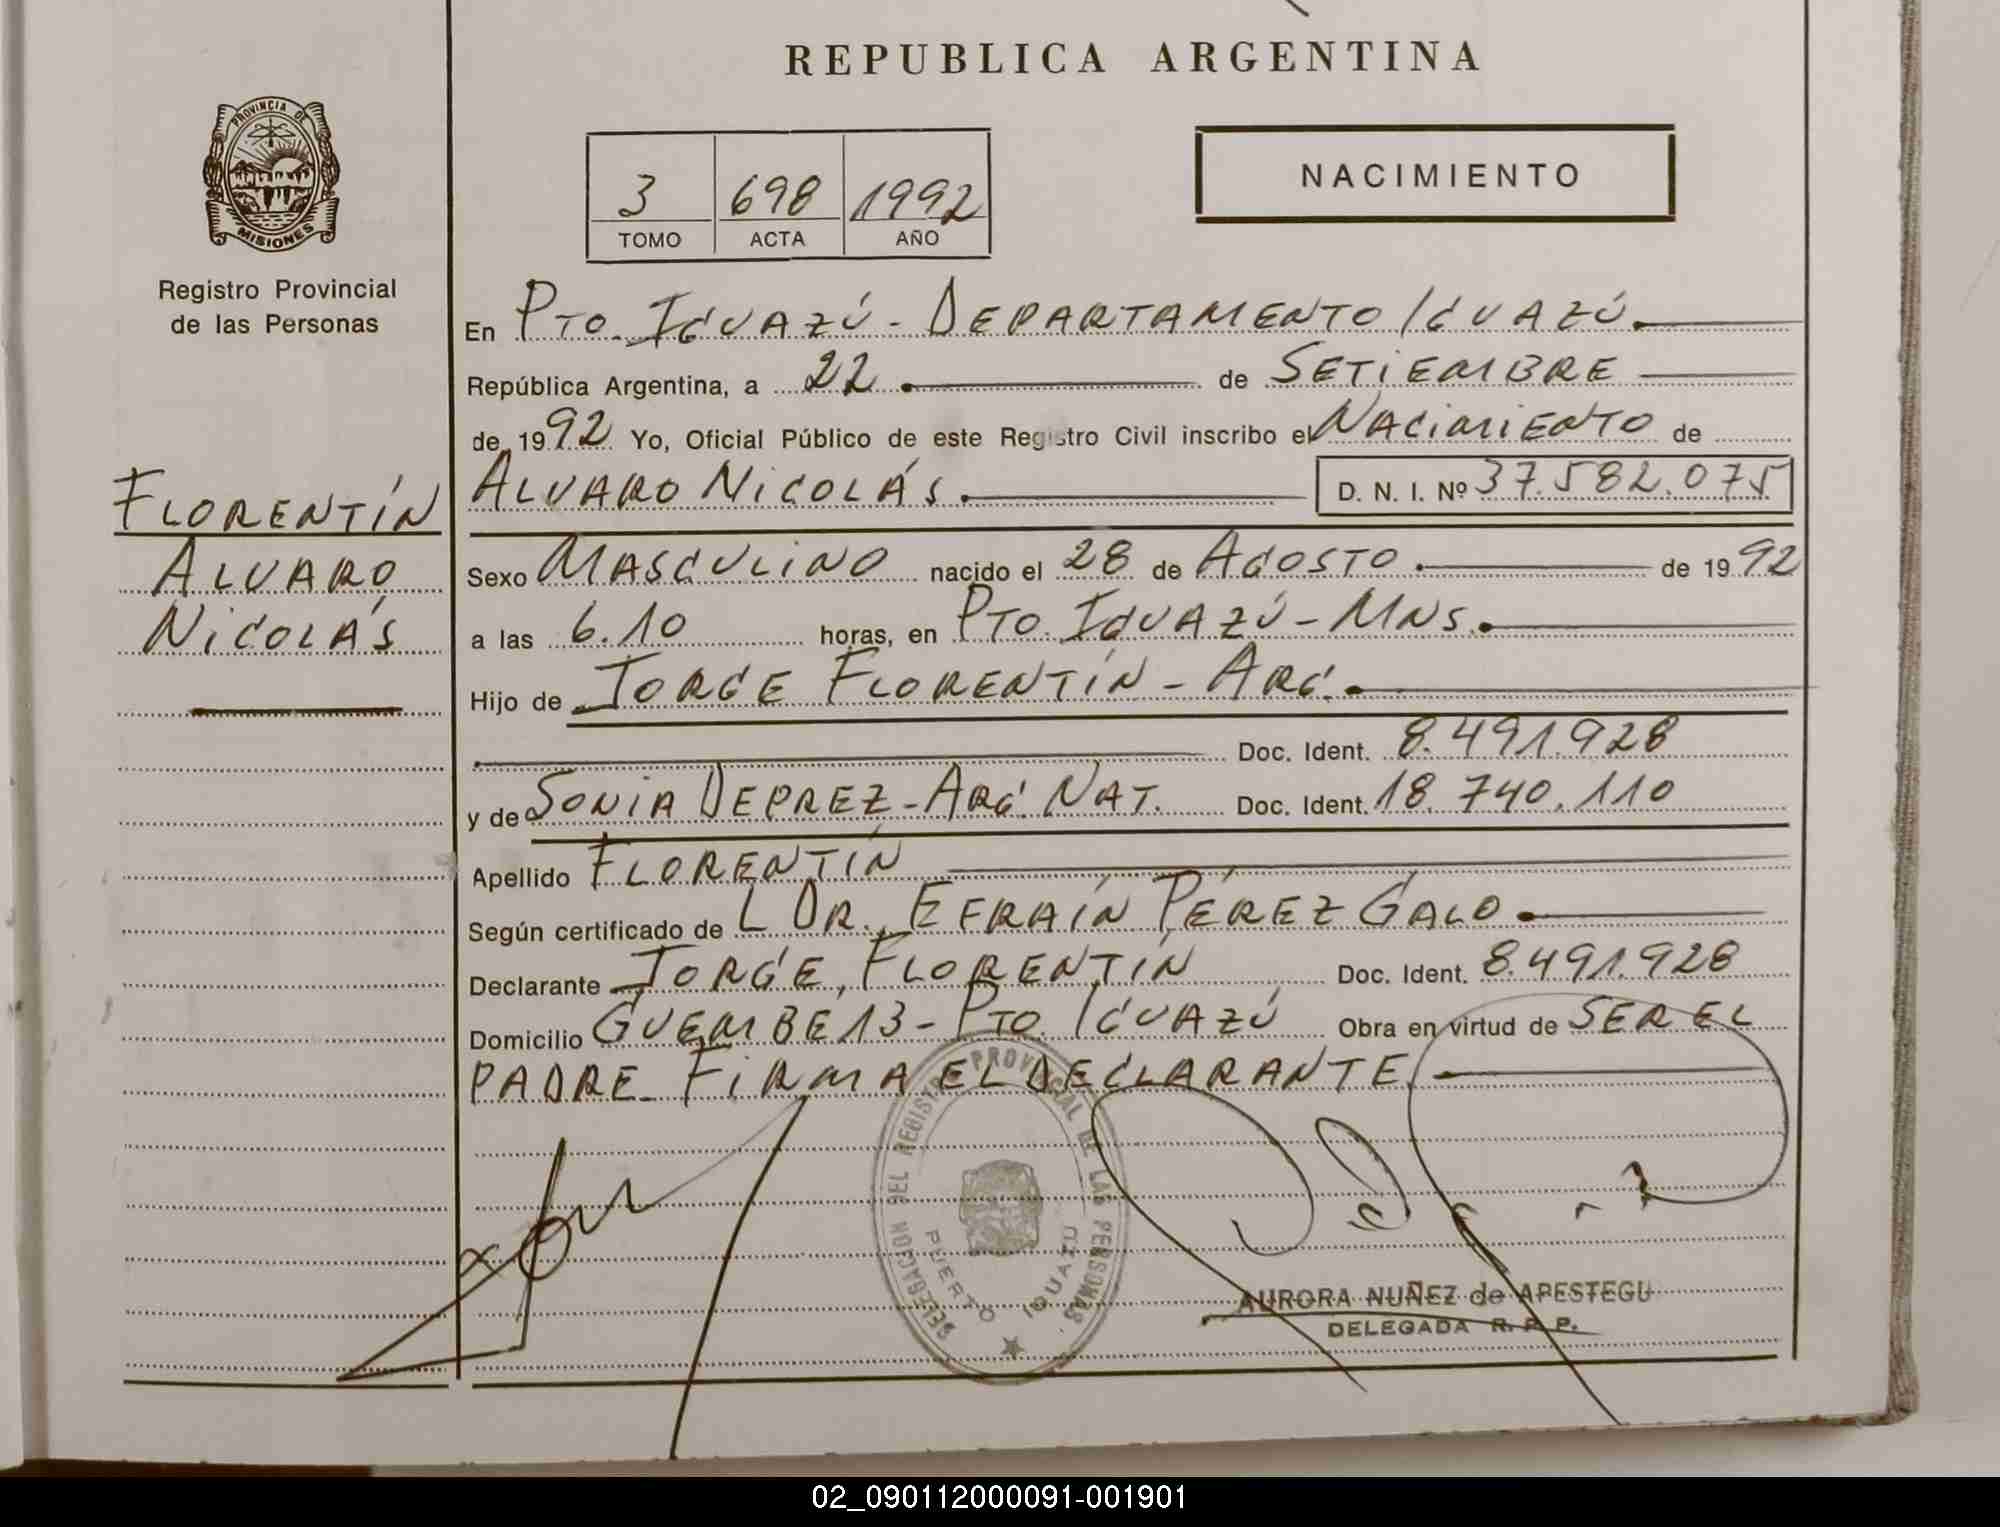 REPUBLICA ARGENTINA
PROVINCIA DE
MISIONES
Registro Provincial
de las Personas
3 698 1992
TOMO ACTA AÑO
NACIMIENTO
En Pto. Iguazú - Departamento Iguazú.
República Argentina, a 22 de Setiembre
de 1992 Yo, Oficial Público de este Registro Civil inscribo el Nacimiento de
Alvaro Nicolás. D. N. I. Nº 37.582.075
Florentín
Alvaro
Nicolás
Sexo Masculino nacido el 28 de Agosto de 1992
a las 6.10 horas, en Pto. Iguazú - Mns.
Hijo de Jorge Florentín - Arg.
Doc. Ident. 8.491.928
y de Sonia Deprez - Arg. Nat. Doc. Ident. 18.740.110
Apellido Florentín
Según certificado de L Dr. Efraín Pérez Galo
Declarante Jorge Florentín Doc. Ident. 8.491.928
Domicilio Guembe 13 - Pto. Iguazú Obra en virtud de ser el
padre. Firma el declarante.
DELEGACION DEL REGISTRO PROVINCIAL DE LAS PERSONAS
PUERTO IGUAZU
AURORA NUÑEZ de APESTEGU
DELEGADA R. P. P.
02_090112000091-001901